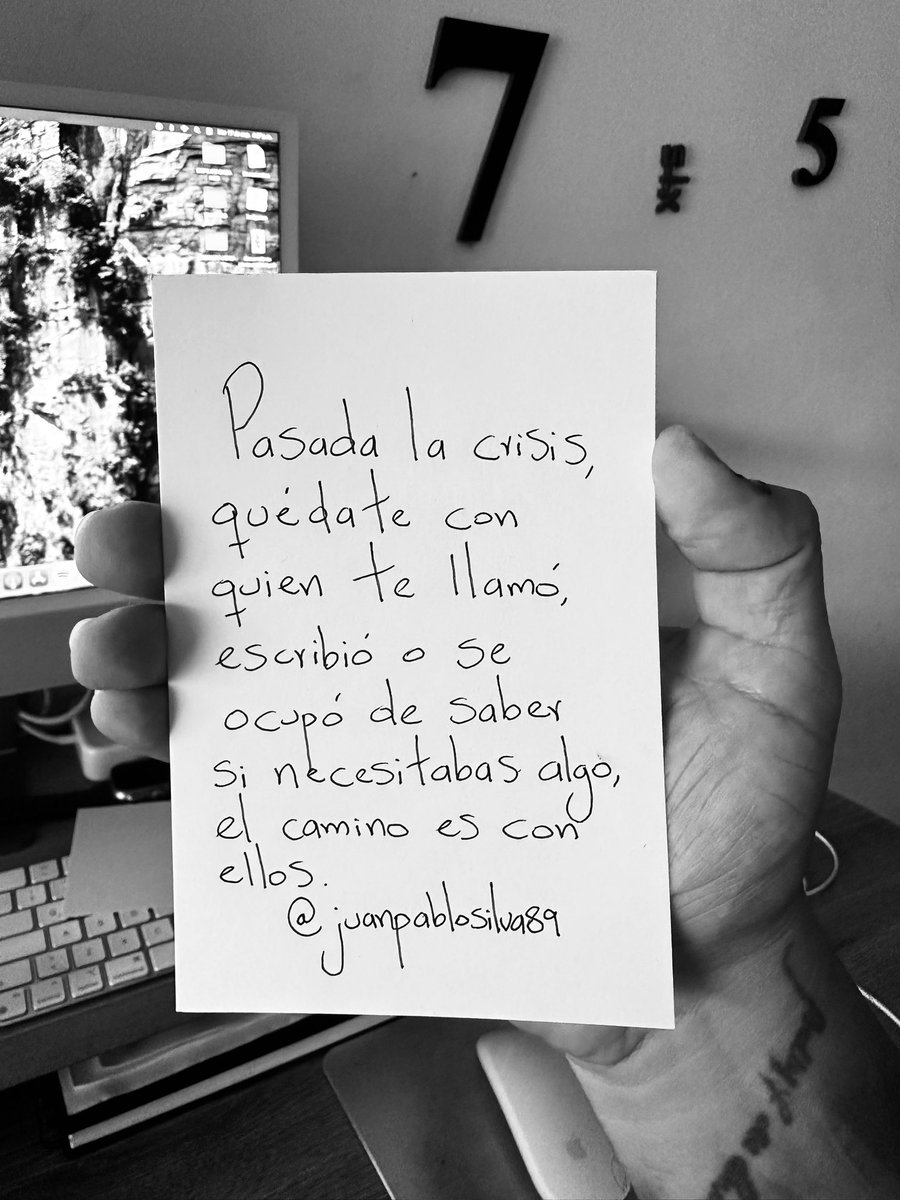 7
six
5
Pasada la crisis,
quédate con
quien te llamó,
escribió o se
ocupó de saber
si necesitabas algo,
el camino es con
ellos.
@juanpablosilva89